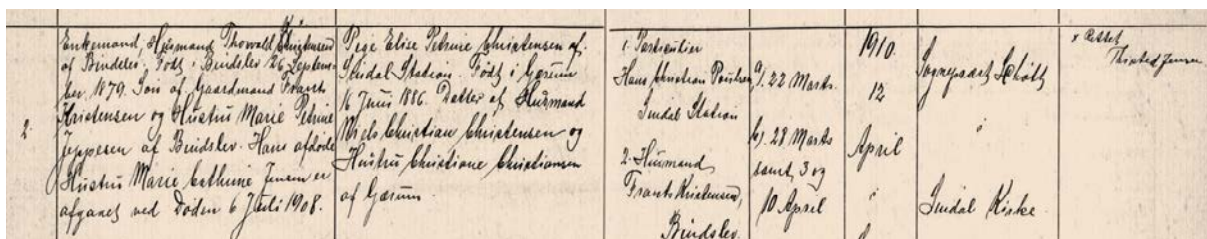 2.
Enkemand, Husmand Thorvald Christensen
af Bindslev. Født i Bindslev 26 Septem-
ber 1879. Søn af Gaardmand Frants
Kristensen og Hustru Marie Petrine
Jeppesen af Bindslev. Hans afdøde
Hustru Marie Cathrine Jensen er
afgaaet ved Døden 6 Juli 1908.
Pige Elise Petrine Christensen af
Sindal Station. Født i Gærum
16 Juni 1886. Datter af Husmand
Niels Christian Christensen og
Hustru Christiane Christiansen
af Gærum.
1. Particulier
Hans Christian Poulsen,
Sindal Station
2. Husmand
Frants Kristensen,
Bindslev.
a). 22 Marts
b). 28 Marts
samt 3 og
10 April
1910
12
April
i
Sognepræst Schøtt
i
Sindal Kirke
x Attest
Thisted Jensen